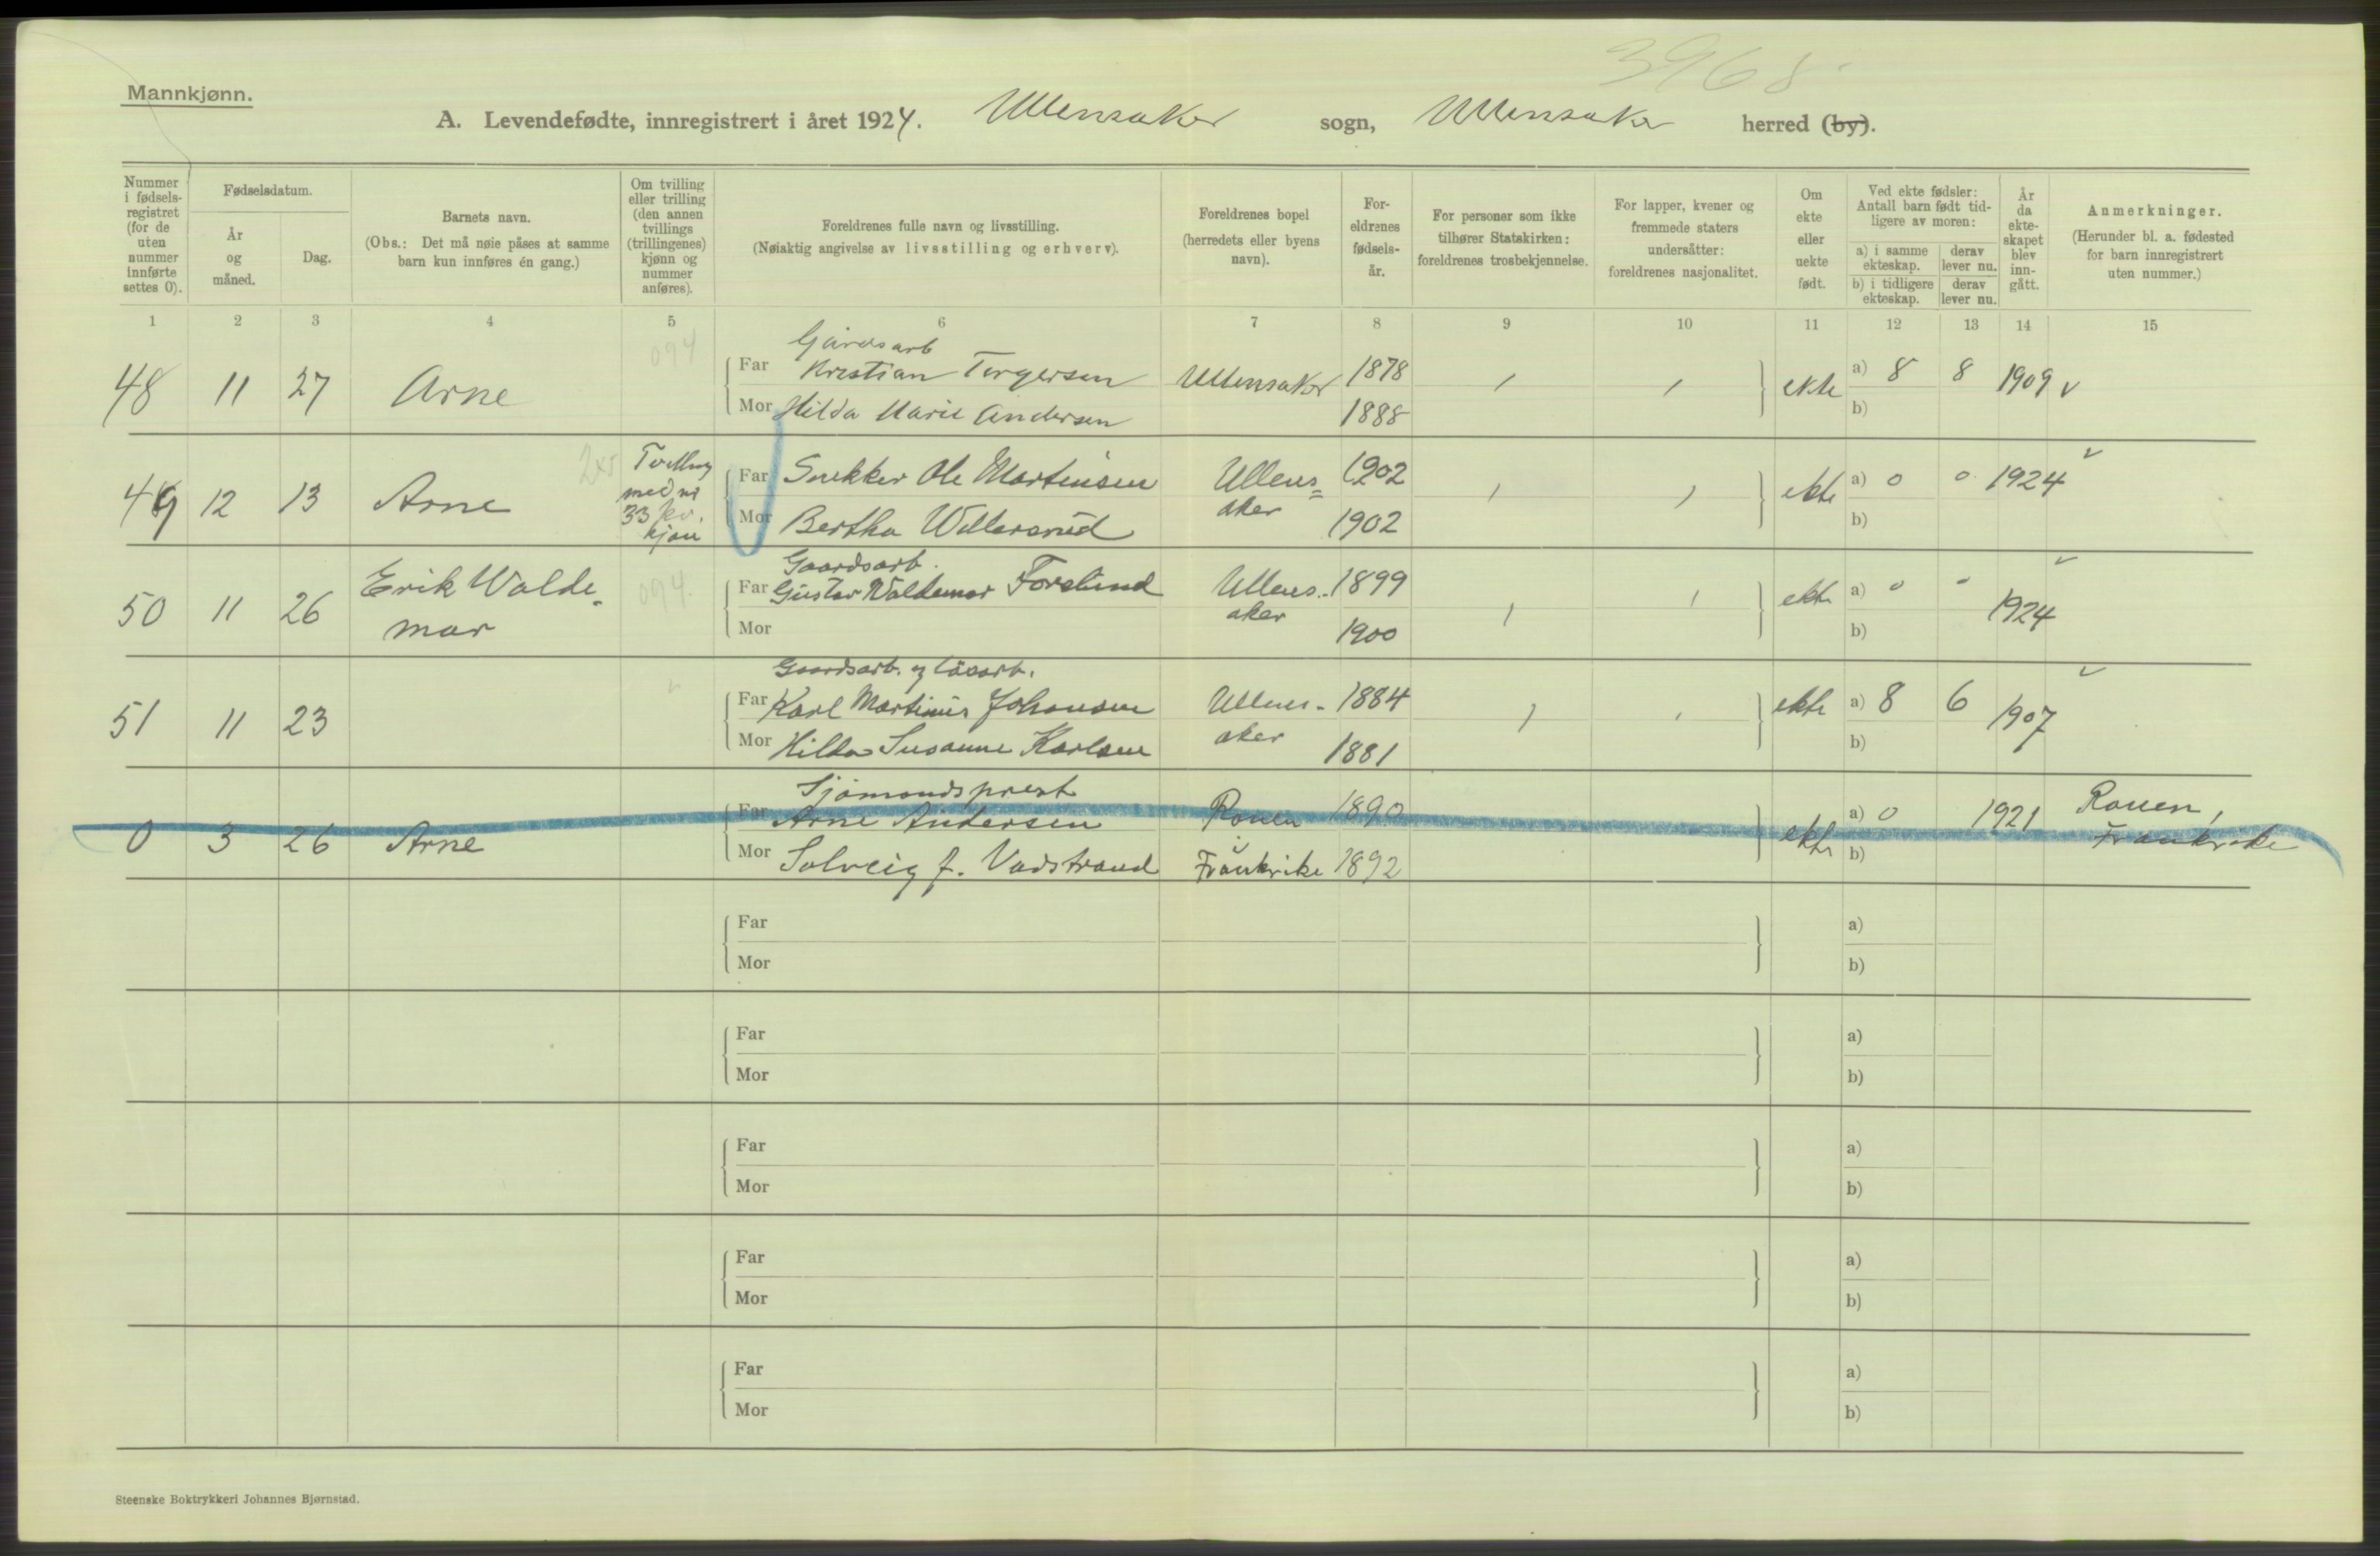 3968
Mannkjønn.
A. Levendefødte, innregistrert i året 1924. Ullensaker sogn, Ullensaker herred (by).
Nummer i fødsels-registret (for de uten nummer innførte settes 0).
Fødselsdatum.
År og måned.
Dag.
Barnets navn.
(Obs.: Det må nøie påses at samme barn kun innføres én gang.)
Om tvilling eller trilling (den annen tvillings (trillingenes) kjønn og nummer anføres).
Foreldrenes fulle navn og livsstilling.
(Nøiaktig angivelse av livsstilling og erhverv).
Foreldrenes bopel (herredets eller byens navn).
For-eldrenes fødsels-år.
For personer som ikke tilhører Statskirken: foreldrenes trosbekjennelse.
For lapper, kvener og fremmede staters undersåtter: foreldrenes nasjonalitet.
Om ekte eller uekte født.
Ved ekte fødsler: Antall barn født tid-ligere av moren:
a) i samme ekteskap.
derav lever nu.
b) i tidligere ekteskap.
derav lever nu.
År da ekte-skapet blev inn-gått.
Anmerkninger.
(Herunder bl. a. fødested for barn innregistrert uten nummer.)
1 2 3 4 5 6 7 8 9 10 11 12 13 14 15
094
Gårdsarb
48 11 27 Arne Far Kristian Torgersen Ullensaker 1878 ekte a) 8 8 1909
Mor Hilda Marie Andersen 1888 b)
49 12 13 Arne Tvilling med nr 33 kv. kjøn Far Snekker Ole Martinsen Ullens=aker 1902 ekte a) 0 0 1924
Mor Bertha Willersrud 1902 b)
Gaardsarb.
50 11 26 Erik Walde-mar 094 Far Gustav Waldemar Forslund Ullens-aker 1899 ekte a) 0 0 1924
Mor 1900 b)
Gaardsarb. og
51 11 23 Far Karl Martinius Johansen Ullens-aker 1884 ekte a) 8 6 1907
Mor Hilda Susanne Karlsen 1881 b)
Sjømandsprest
0 3 26 Arne Far Arne Andersen Rouen 1890 ekte a) 0 1921 Rouen, Frankrike
Mor Solveig f. Vadstrand Frankrike 1892 b)
Far a)
Mor b)
Far a)
Mor b)
Far a)
Mor b)
Far a)
Mor b)
Far a)
Mor b)
Steenske Boktrykkeri Johannes Bjørnstad.